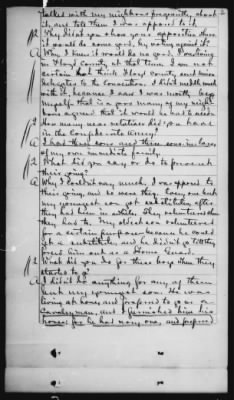 talked with my neighbors frequently about
it, and told them I was opposed to it.
Q Why did you show your opposition when
it would do some good, by voting against it?
A Why I knew it would be no good. I was living
in Floyd County at that time. I am not
certain but think Floyd County sent three
delegates to the convention. I didn't meddle much
with it, because I saw it was worth
myself that in a poor many of my neigh-
bors agreed that it would be hard to
Q How many near relatives did you have
in the Confederate Army?
A I had three sons and three sons-in-laws
of my own immediate family.
Q What did you say or do to prevent
their going?
A Why I couldn't say much. I was opposed to
their going, and so were they. Every one but
my youngest son got substitutes after
they had been in awhile. They volunteered when
they had to. My oldest son volunteered
for a certain purpose because he could
get a substitute, and he did it till they
forced him out as a Home Guard.
Q What did you do for these boys when they
started to go?
A I didn't do anything for any of them
but my youngest son. He was
living at home, and preferred to go as a
Cavalryman, and I furnished him his
horse; for he had none, and preferred